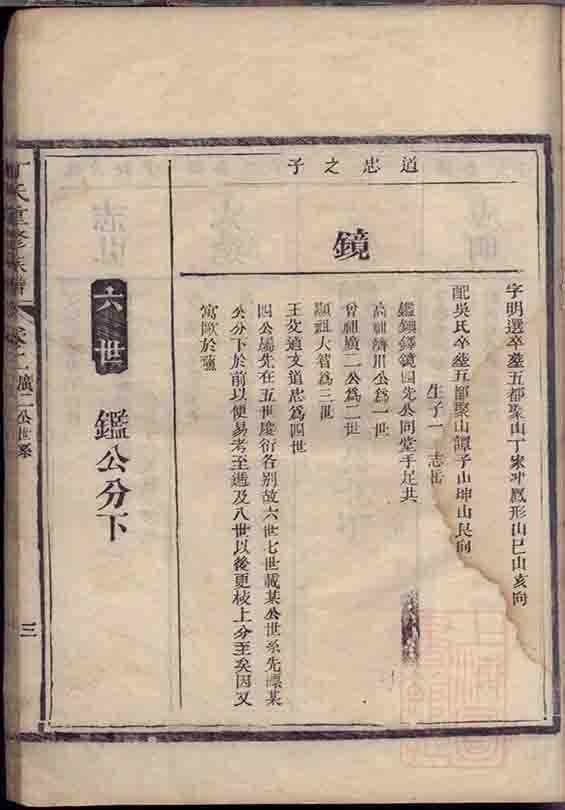 道忠之子
鏡
字明選卒塟五都聚山丁家冲鳳形山巳山亥向
配吳氏卒塟五都聚山譚子山坤山艮向
生子一 志岳
鑑鎭鐸鏡四先公同堂手足共
高祖濟川公爲一世
曾祖廣二公爲二世
顯祖大智爲三世
王父道文道忠爲四世
四公屬先在五世慶衍各别故六世七世載某公世系先標某
公分下於前以便易考至遞及八世以後更枝上分至矣因又
寓歐於蘓
六世
鑑公分下
丁氏重修族譜 卷二 廣二公世系
三